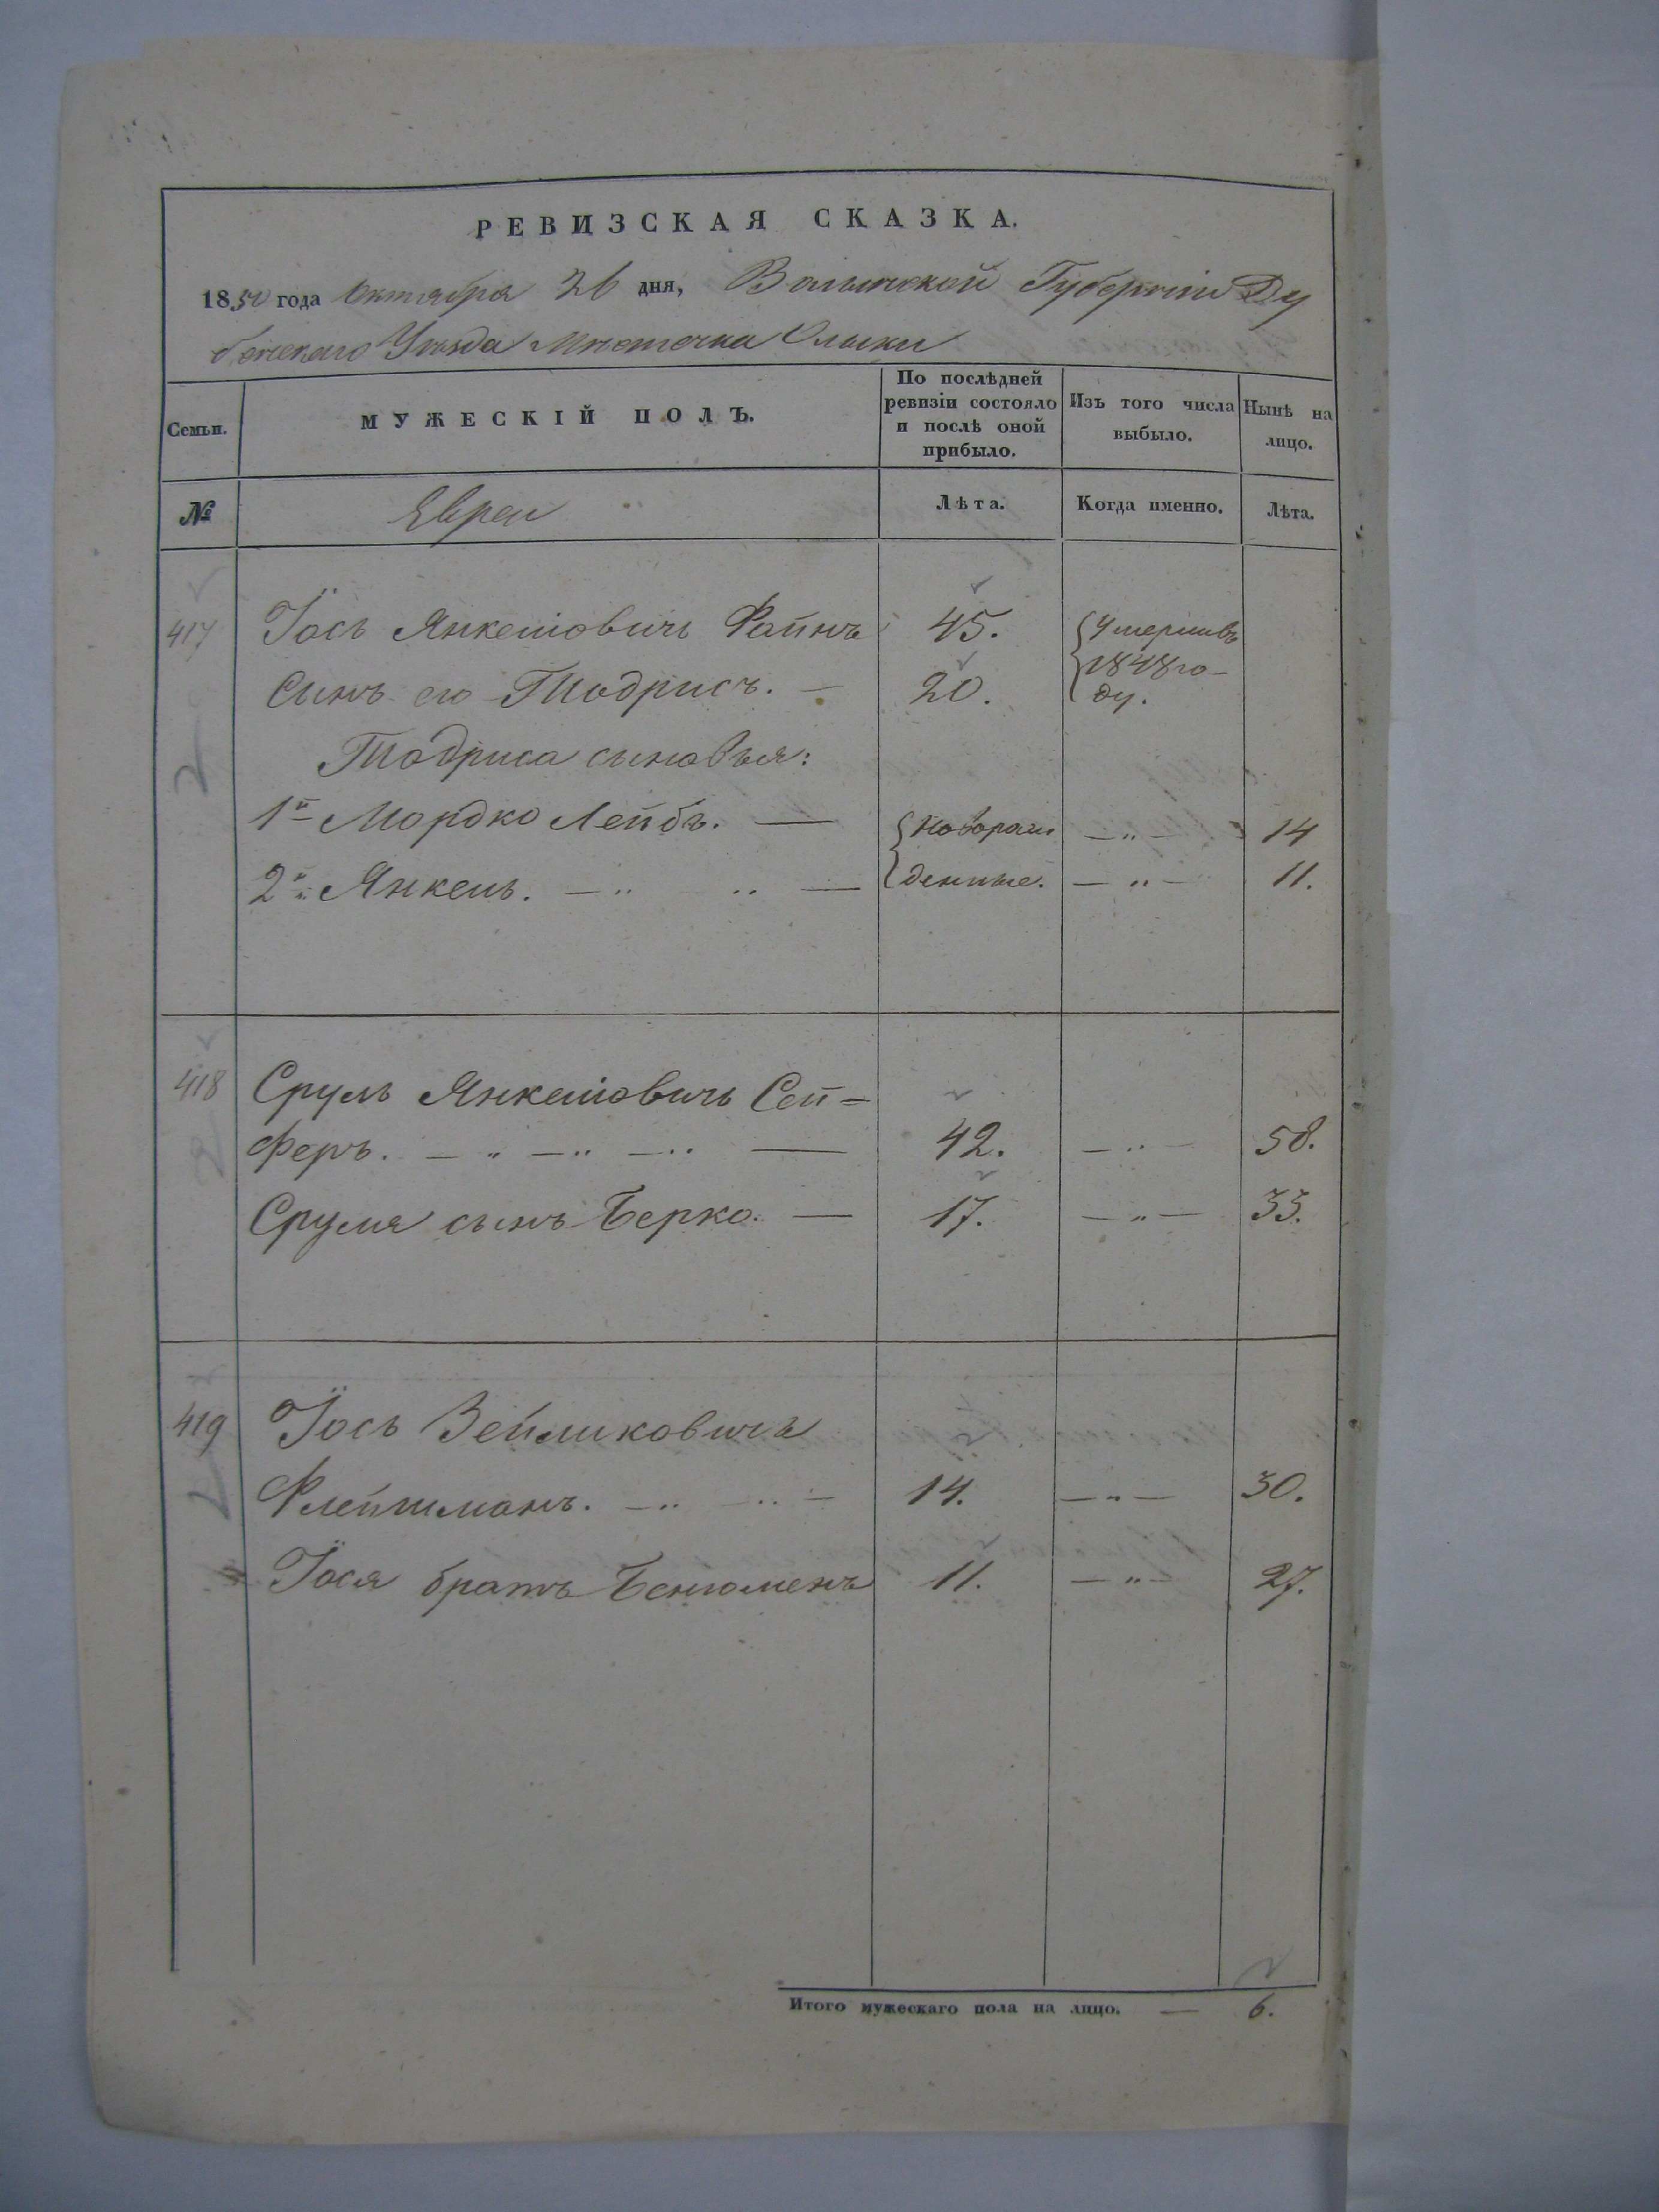 РЕВИЗСКАЯ СКАЗКА.
1850 года Октября 26 дня, Волынской Губернiи Ду
бенскаго Уѣзда Мѣстечка Олыки
Семьи.
МУЖЕСКІЙ ПОЛЪ.
По послѣдней ревизіи состояло и послѣ оной прибыло.
Изъ того числа выбыло.
Нынѣ на лицо.
№ Евреи Лѣта. Когда именно. Лѣта.
417 Іось Янкелiовичь Файнъ 45. Умерли въ
Сынъ его Тодрисъ. — 20. 1848 го-
ду.
Тодриса сыновья:
1й Мордко Лейбъ. — Новорож — „ — 14
2й Янкель. — „ „ — денные. — „ — 11.
418 Сруль Янкелiовичь Сей-
феръ. — „ — „ — „ — 42. — „ — 58.
Сруля сынъ Берко. — 17. — „ — 33.
419 Іось Зейликовичъ
Флейшманъ. — „ „ — 14. — „ — 30.
Іося братъ Бенюменъ 11. — „ — 27.
Итого мужескаго пола на лицо. — 6.